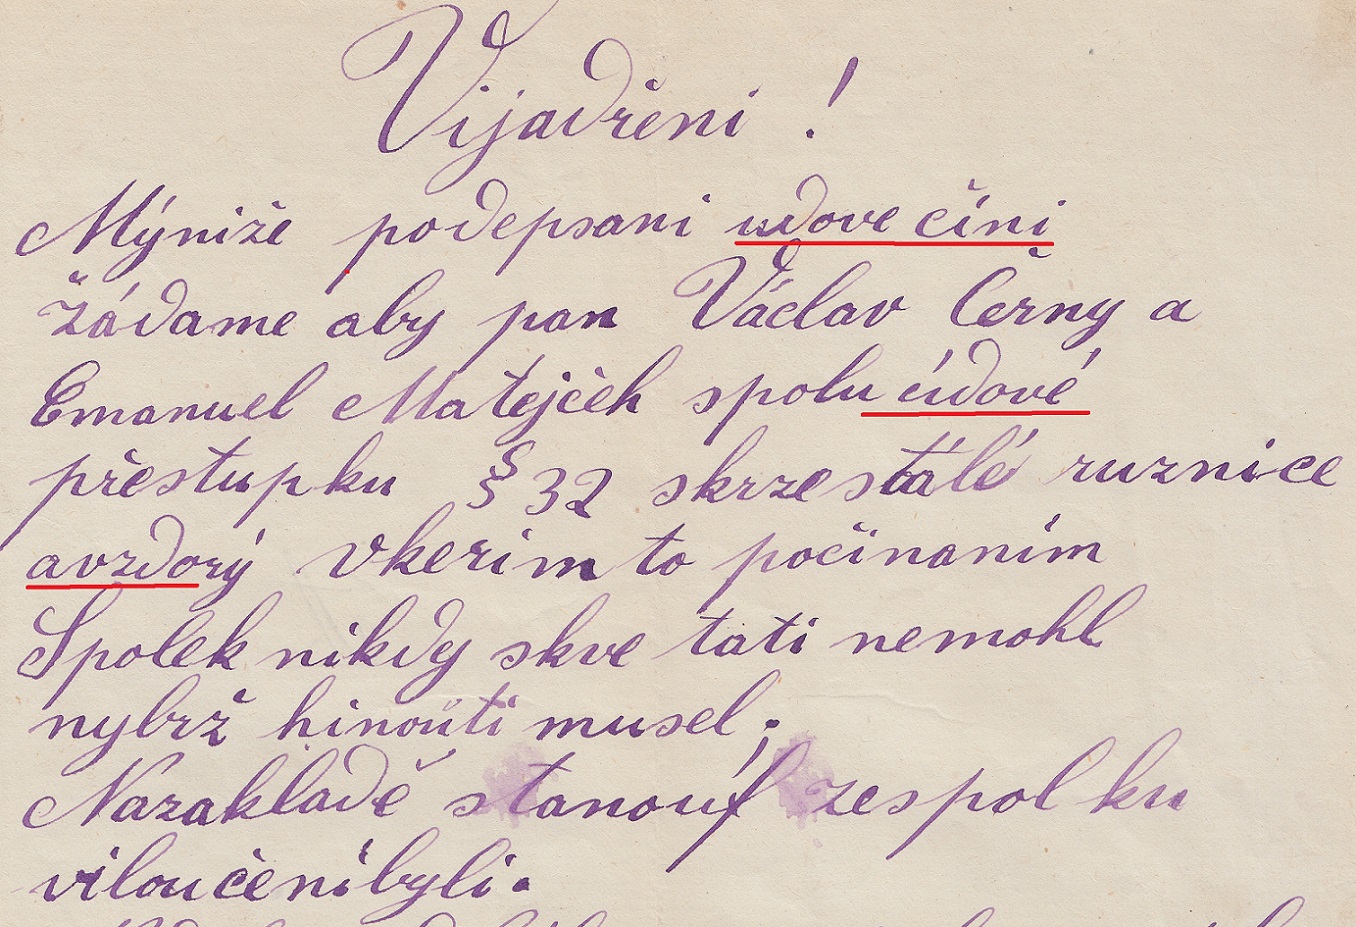 Vijadřeni!
Mýniže podepsani udovečíni
žádame aby pan Václav Černy a
Emanuel Matějček spolu údové
přestupku § 32 skrzestálé ruznice
avzdorý vkerim to počinaním
Spolek nikdy skve tati nemohl
nybrž hinouti musel.
Nazakladě stanouf zespolku
viloučeni byli.